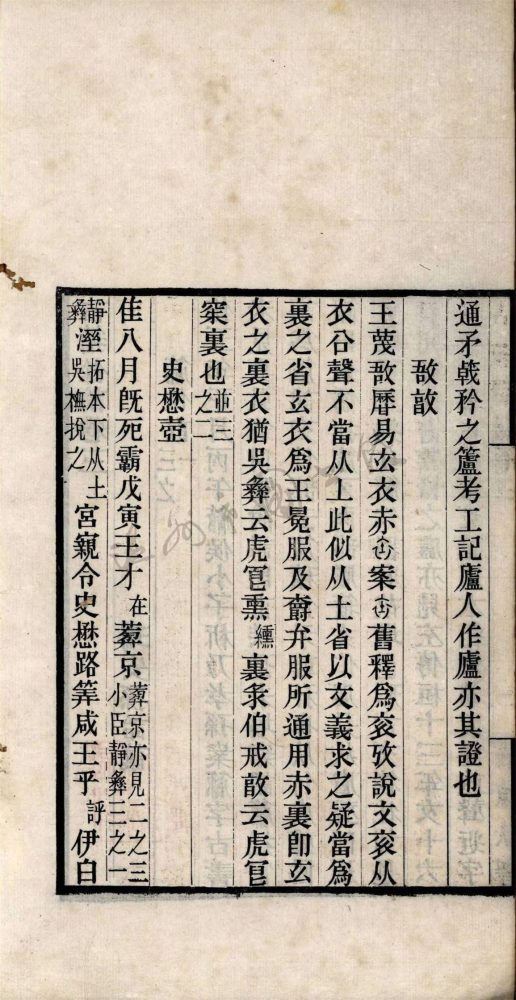 通矛戟矜之籚考工記廬人作廬亦其證也
敔𣪘
王蔑敔曆易玄衣赤 案 舊釋爲袞攷說文袞从
衣㕣聲不當从丄此似从土省以文義求之疑當爲
裏之省玄衣爲王冕服及齎弁服所通用赤裏卽玄
衣之裏衣猶吳彝云虎冟熏纁裏彔伯戒𣪘云虎冟
窠裏也並三之二
史懋壺
隹八月旣死霸戊寅王才在蒡京蒡京亦見二之三小臣靜彝三之一
靜彝溼拓本下从土吳橅挩之宮窺令史懋路筭咸王乎評伊白